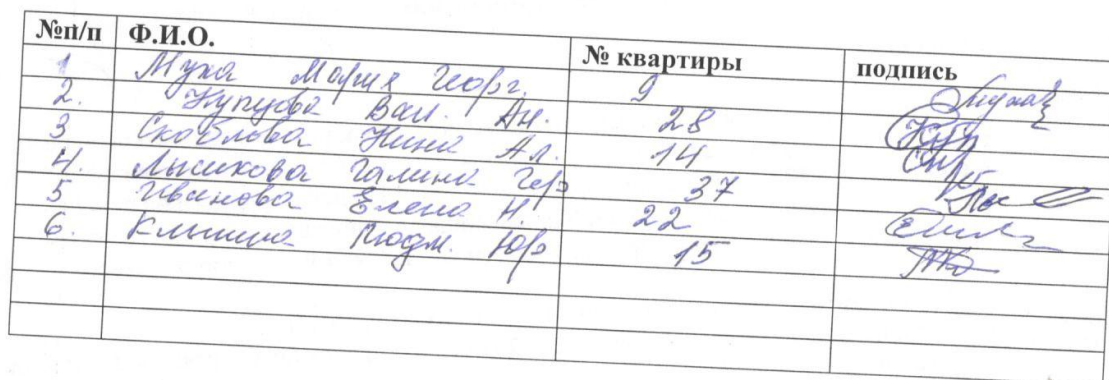 №п/п Ф.И.О. № квартиры подпись
1 Муха Мария Георг. 9
2. Вал. Ан. 28
3 Скоблова Нина Ал. 14
4. Лысикова Галина Гер 37
5 Иванова Елена Н. 22
6. Людм. Юр 15